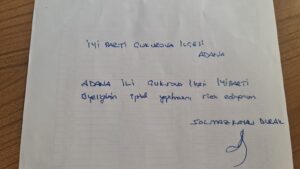 İYİ PARTİ ÇUKUROVA İLÇESİ
ADANA
ADANA İLİ ÇUKUROVA İlçesi İYİ PARTİ
Üyeliğimin iptal yapılmasını rica ediyorum
SOLMAZ KAYAN BURAK